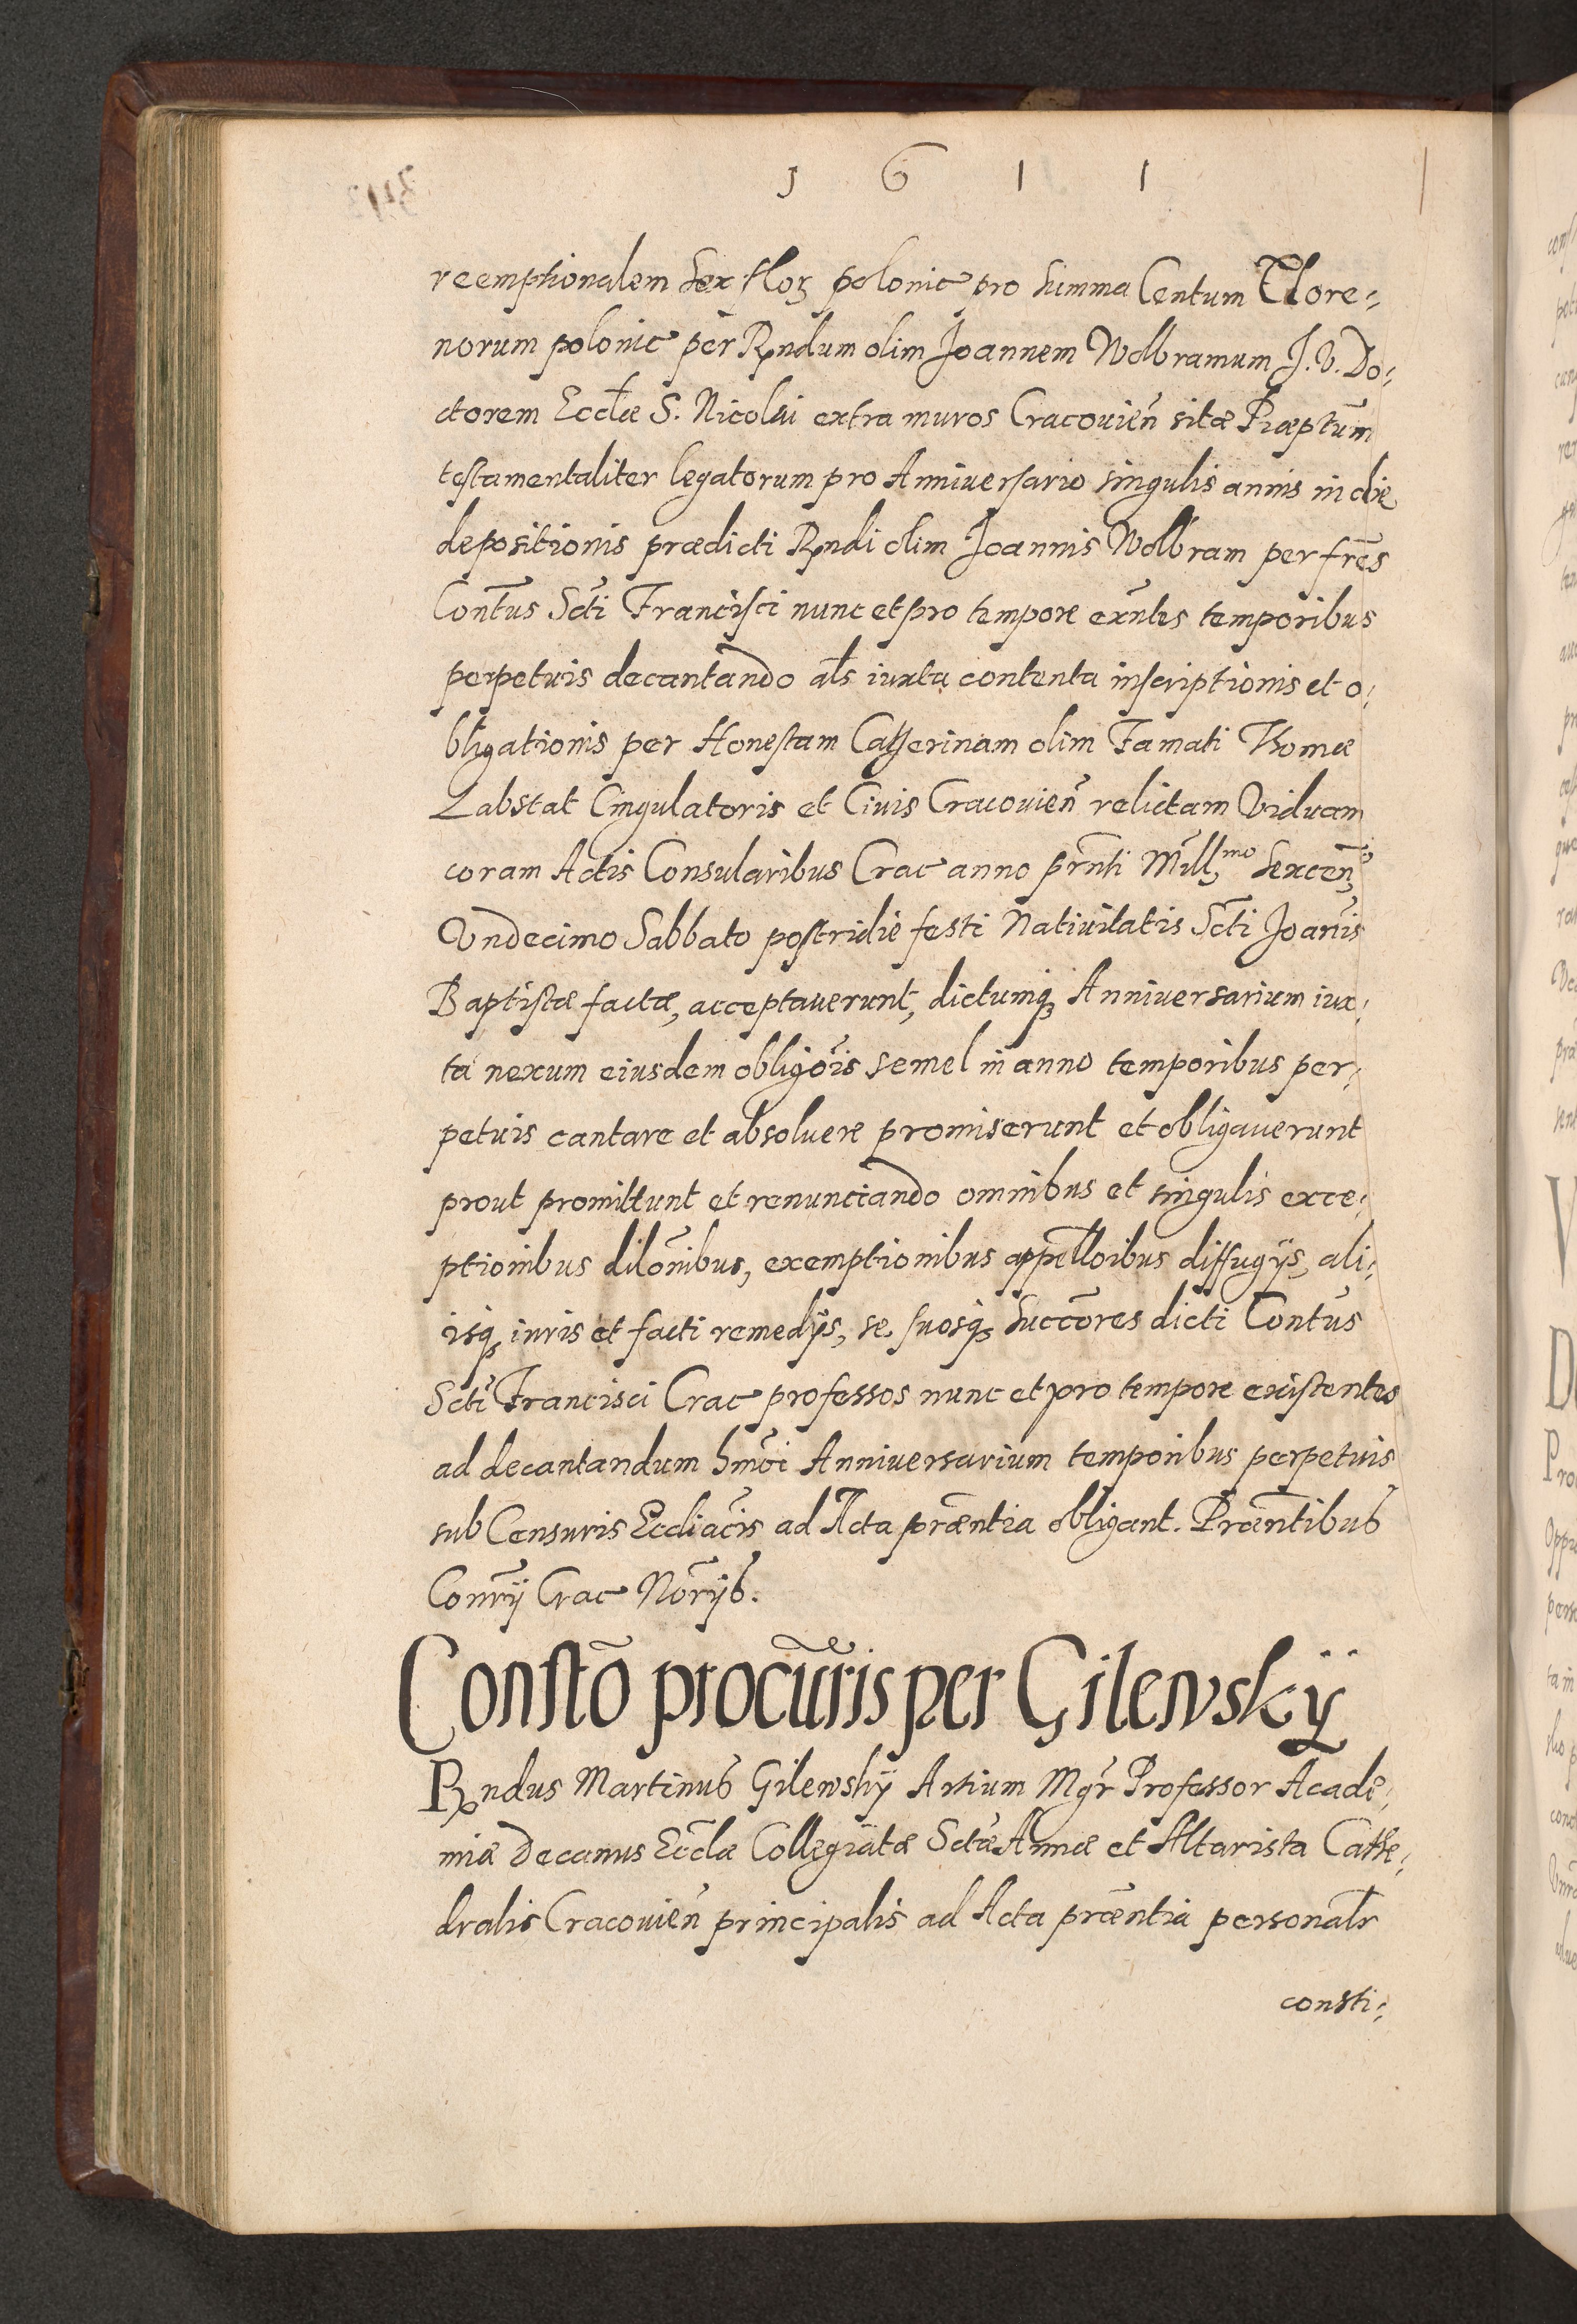 1 6 1 1
reemptionalem Sex floꝝ polonic pro Summa Centum Flore⸗
norum polonic per Rndum olim Joannem Wolbramum J. V. Do⸗
ctorem Eccłæ S. Nicolai extra muros Cracouien̄ sitæ Præptūm
testamentaliter legatorum pro Anniuersario singulis annis in die
depositionis prædicti Rndi olim Joannis Wolbram per fr̄es
Contūs Scti Francisci nunc et pro tempore exn̄tes temporibus
perpetuis decantando als iuxta contenta inscriptionis et o⸗
bligationis per Honestam Catherinam olim Famati Thomæ
Labstat Cingulatoris et Ciuis Cracouien̄ relictam Viduam
coram Actis Consularibus Crac anno prn̄ti Mill,mo Sexcen,o
Vndecimo Sabbato postridie festi Natiuitatis Scti Joan̄is
Baptistæ factæ, acceptauerunt, dictumq; Anniuersarium iux⸗
ta nexum eiusdem obligōis semel in anno temporibus per⸗
petuis cantare et absoluere promiserunt et obligauerunt
prout promittunt et renunciando omnibus et singulis exce⸗
ptionibus dilōnibus, exemptionibus appelloībus diffugijs, ali⸗
isq; iuris et facti remedijs, se suosq; Succōres dicti Contūs
Scti Francisci Crac professos nunc et pro tempore existentes
ad decantandum hmōi Anniuersarium temporibus perpetuis
sub Censuris Eccliācis ad Acta præn̄tia obligant. Præn̄tibus
Conr̄ij Crac Nor̄ijs.
Constō procūris per Gilewskÿ
Rndus Martinus Gilewskÿ Artium Mgr̄ Professor Acade⸗
miæ Decanus Eccl̄æ Collegiatæ Sctæ Annæ et Altarista Cathe⸗
dralis Cracouien̄ principalis ad Acta præn̄tia personalr̄
consti⸗